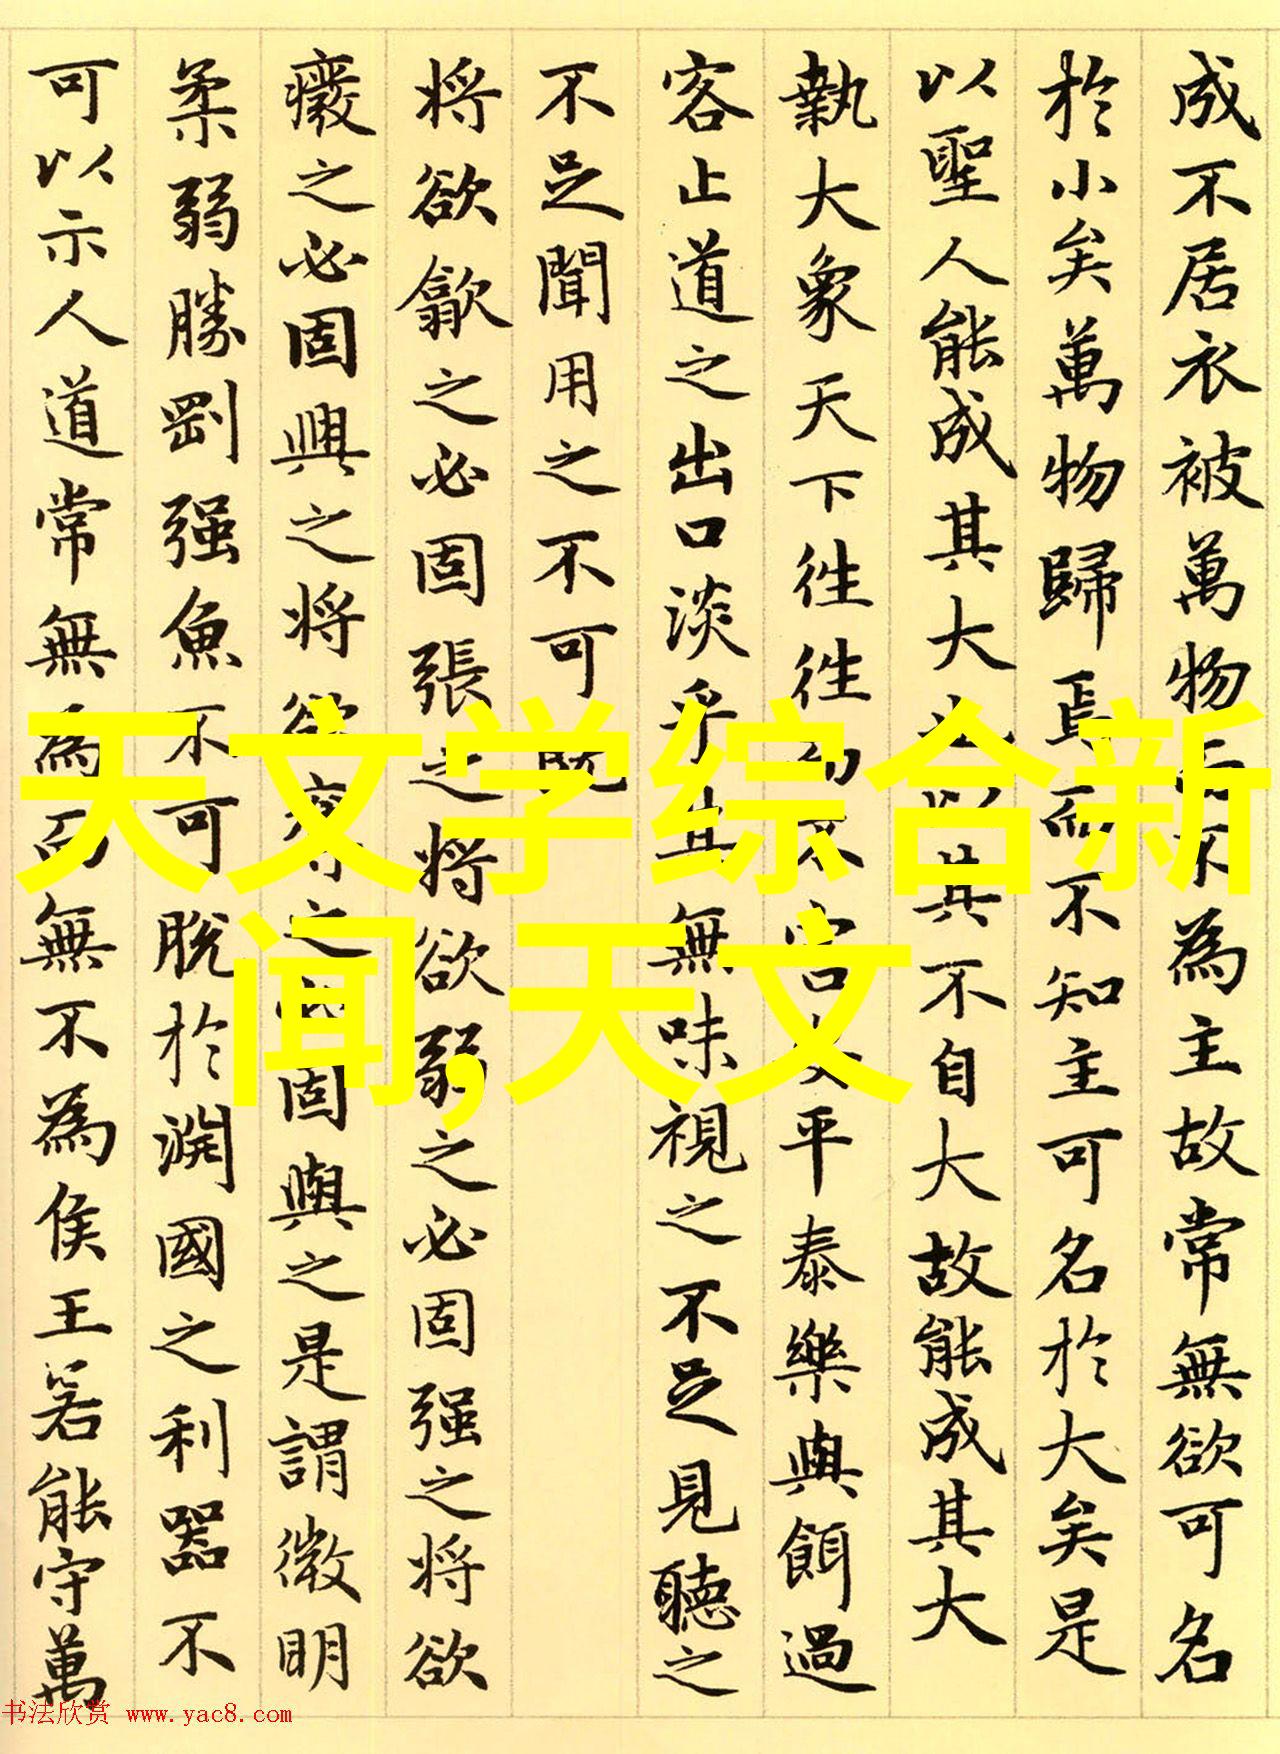 成不居衣被萬物而不為主故常無欲可名
於小矣萬物歸焉而不知主可名於大矣是
以聖人能成其大也以其不自大故能成其大
執大象天下往往而不害安平泰樂與餌過
客止道之出口淡乎其無味視之不足見聽之
不足聞用之不可既
将欲歙之必固張之将欲弱之必固强之将欲
癈之必固興之将欲奪之必固與之是謂微明
柔弱勝剛强魚不可脱於淵國之利器不
可以示人道常無為而無不為侯王若能守萬
天文学综合新
闻,天文
书法欣赏 www.yac8.com